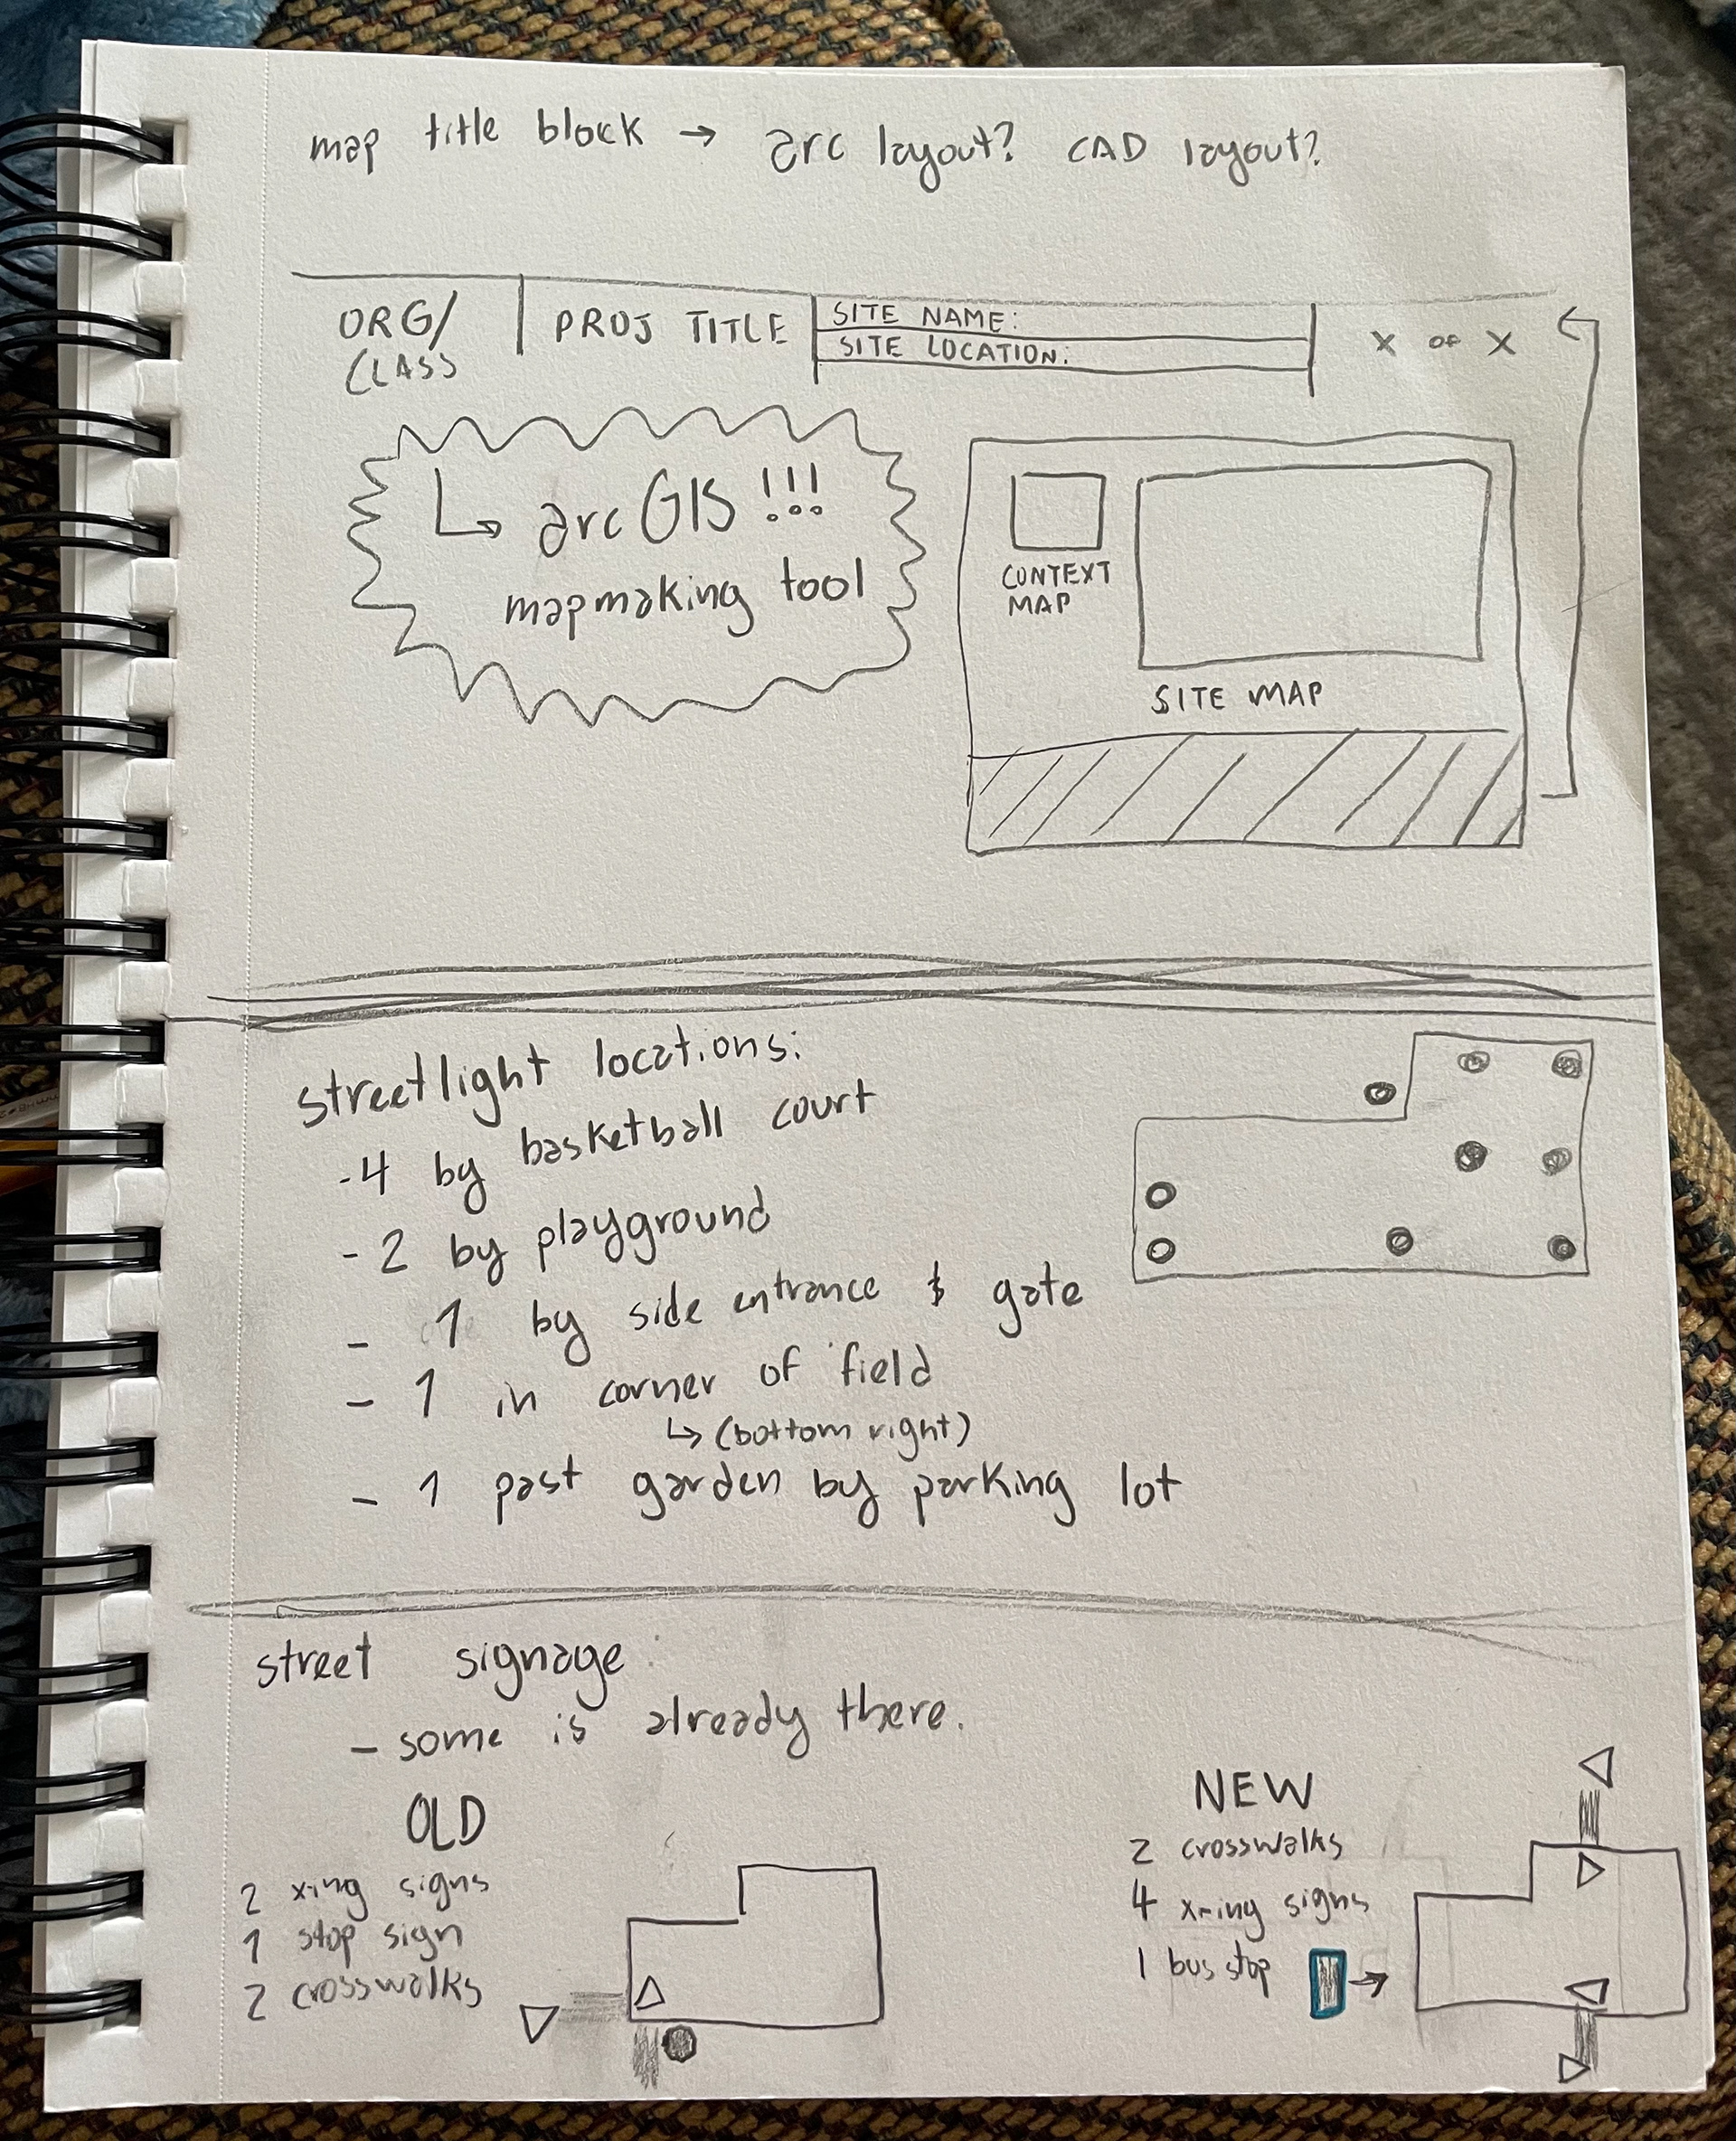 map title block → arc layout? CAD layout?
ORG/
CLASS
PROJ TITLE
SITE NAME:
SITE LOCATION:
X OF X
↳ arcGIS !!!
mapmaking tool
CONTEXT
MAP
SITE MAP
streetlight locations:
-4 by basketball court
-2 by playground
- 1 by side entrance & gate
- 1 in corner of field
↳ (bottom right)
- 1 past garden by parking lot
street signage:
- some is already there.
OLD
2 xing signs
1 stop sign
2 crosswalks
NEW
2 crosswalks
4 x-ing signs
1 bus stop →